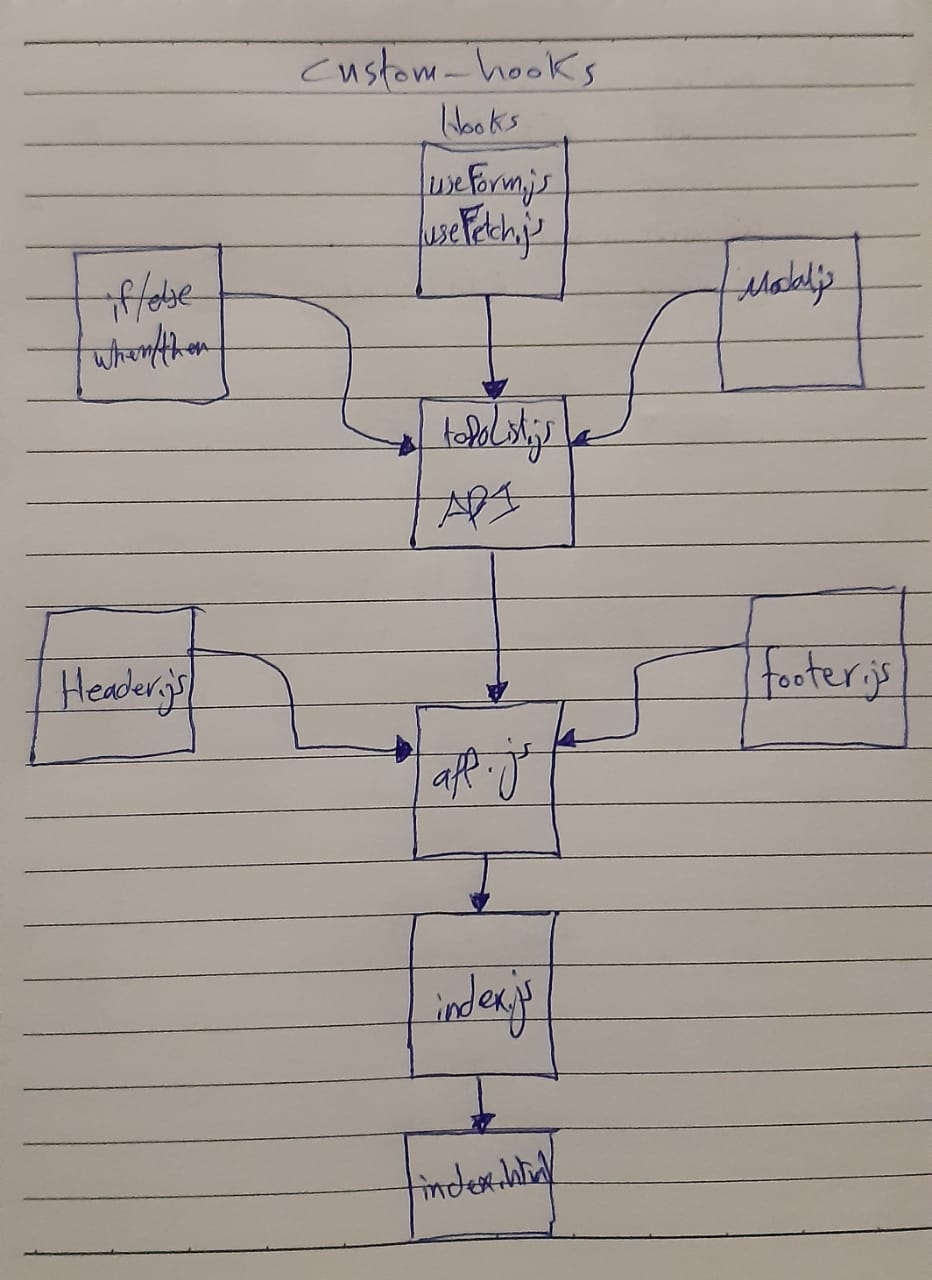 custom-hooks
Hooks
useForm.js
useFetch.js
if/else
when/then
Modal.js
toDoList.js
API
Header.js
footer.js
app.js
index.js
index.html